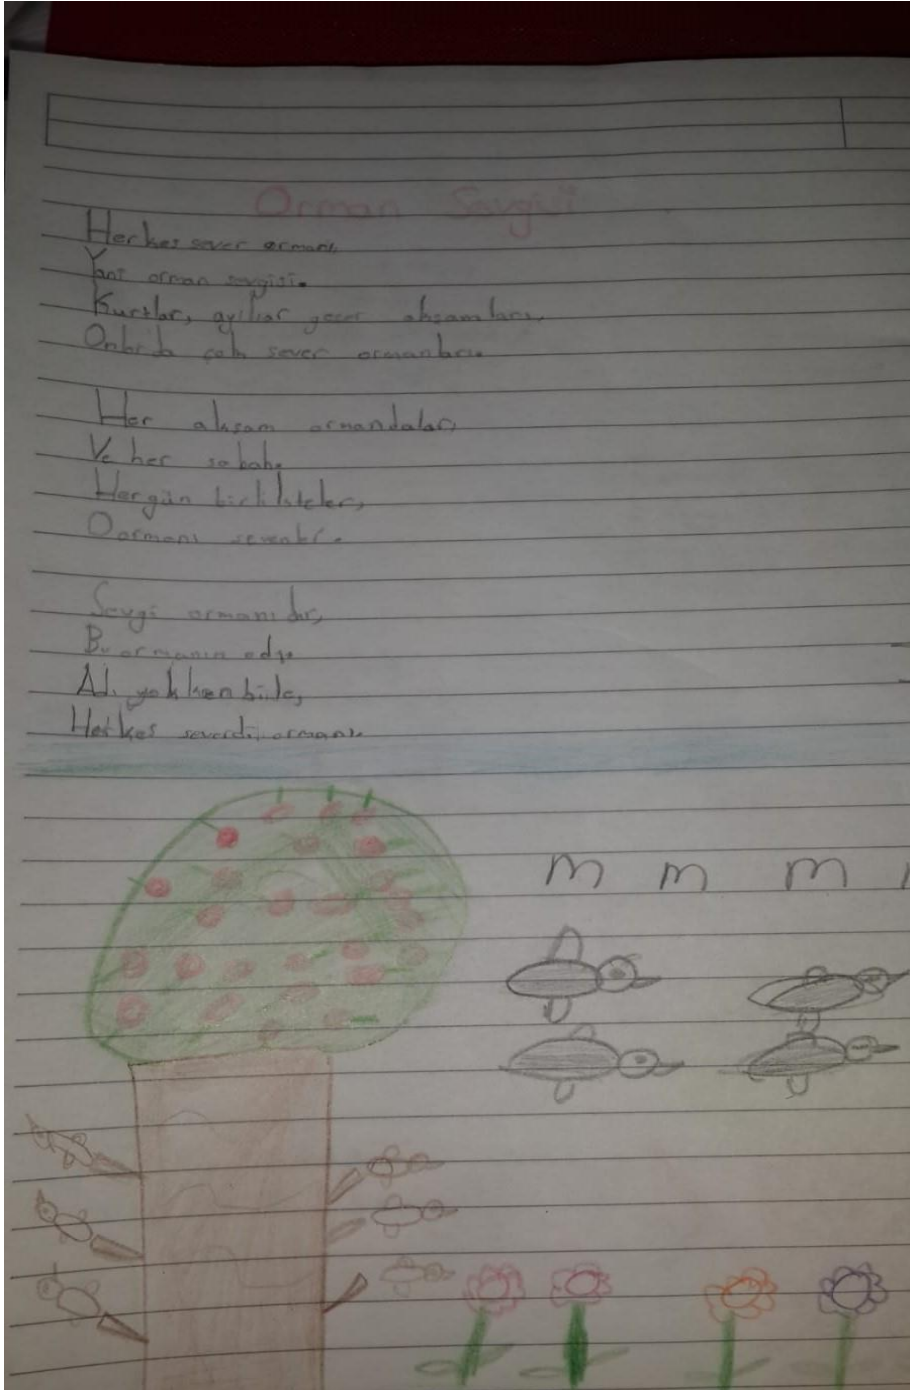 Orman Sevgisi
Herkes sever ormanı,
Yani orman sevgisi.
Kurtlar, ayılar gecer akşamları,
Onlarda çok sever ormanları.
Her akşam ormandalar,
Ve her sabah.
Hergün birlikteler,
Oormanı
Sevgi ormanıdır,
Bu ormanın adı.
Adı yokken bile,
Herkes severdi ormanı.
m m m